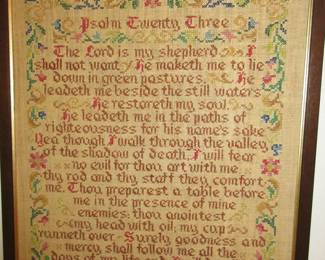 Psalm Twenty Three
The Lord is my shepherd I
shall not want He maketh me to lie
down in green pastures. He
leadeth me beside the still waters
He restoreth my soul.
He leadeth me in the paths of
righteousness for his name's sake
Yea though I walk through the valley
of the shadow of death. I will fear
no evil for thou art with me
thy rod and thy staff they comfort
me. Thou preparest a table before
me in the presence of mine
enemies; thou anointest
my head with oil; my cup
runneth over Surely goodness and
mercy shall follow me all the
days of my life and I will